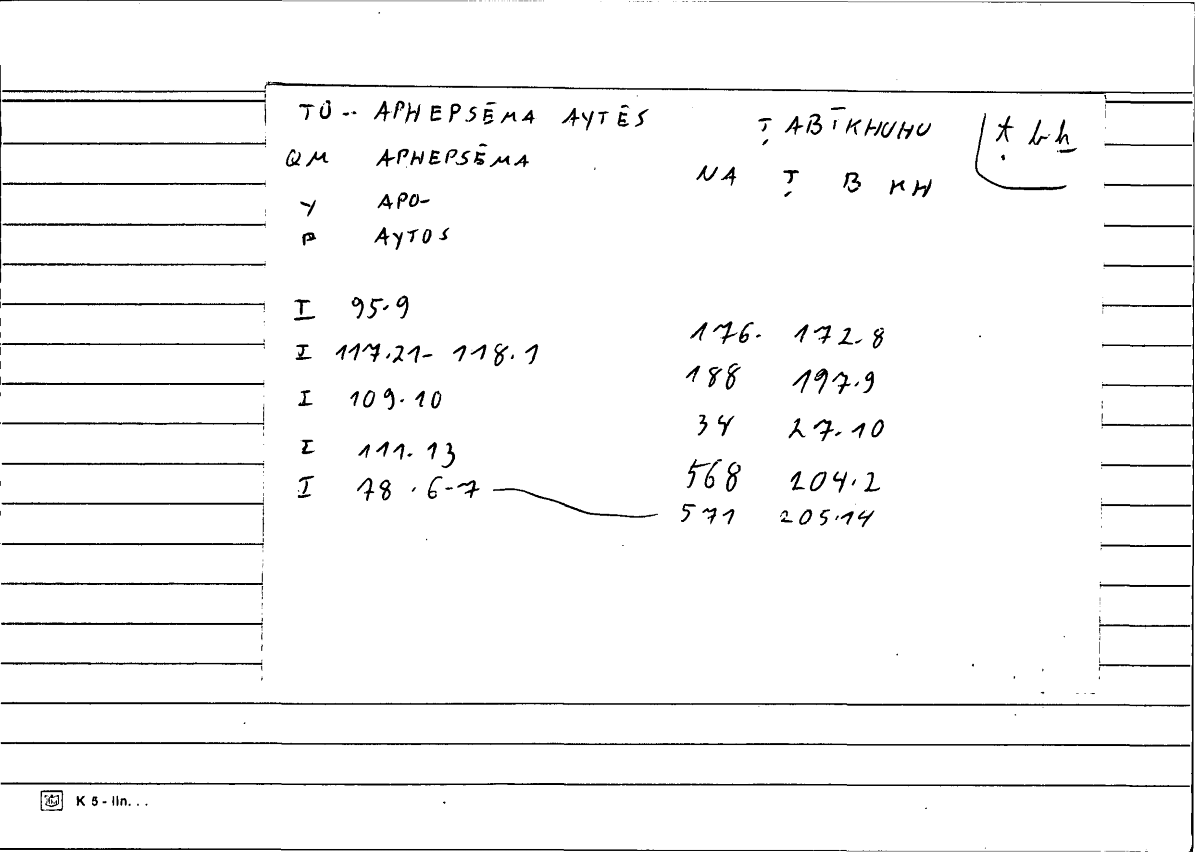 TŌ-- APHEPSĒMA AYTĒS ṬABĪKHUHU ṭ b ẖ
QM APHEPSĒMA NA Ṭ B KH
Y APO-
P AYTOS
I 95.9
176. 172.8
I 117.21- 118.1
188 197.9
I 109.10
34 27.10
I 111.13
568 204.2
I 78.6-7 — 571 205.14
K 5 - lin. . .